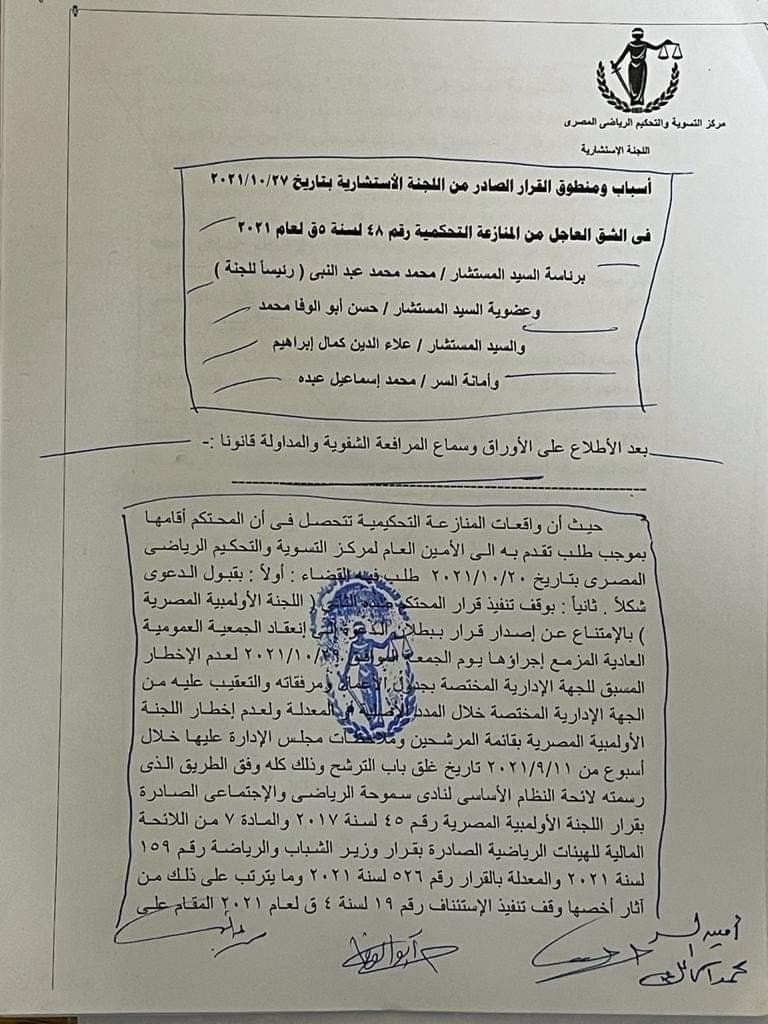 مركز التسوية والتحكيم الرياضى المصرى
اللجنة الإستشارية
أسباب ومنطوق القرار الصادر من اللجنة الأستشارية بتاريخ ٢٠٢١/١٠/٢٧
فى الشق العاجل من المنازعة التحكمية رقم ٤٨ لسنة ٥ق لعام ٢٠٢١
برئاسة السيد المستشار / محمد محمد عبد النبى ( رئيسأ للجنة )
وعضوية السيد المستشار / حسن أبو الوفا محمد
والسيد المستشار / علاء الدين كمال إبراهيم
وأمانة السر / محمد إسماعيل عبده
بعد الأطلاع على الأوراق وسماع المرافعة الشفوية والمداولة قانونا :-
حيث أن واقعات المنازعة التحكيمية تتحصل فى أن المحتكم أقامها
بموجب طلب تقدم به الى الأمين العام لمركز التسوية والتحكيم الرياضى
المصرى بتاريخ ٢٠٢١/١٠/٢٠ طلب فيه القضاء : أولاً : بقبول الدعوى
شكلاً . ثانياً : بوقف تنفيذ قرار المحتكم ضده الثانى ( اللجنة الأولمبية المصرية
) بالإمتناع عن إصدار قرار ببطلان الدعوة إلى إنعقاد الجمعية العمومية
العادية المزمع إجراؤها يوم الجمعة الموافق ٢٠٢١/١٠/٢٩ لعدم الإخطار
المسبق للجهة الإدارية المختصة بجدول الأعمال ومرفقاته والتعقيب عليه من
الجهة الإدارية المختصة خلال المدد المعدلة ولعدم إخطار اللجنة
الأولمبية المصرية بقائمة المرشحين وملاحظات مجلس الإدارة عليها خلال
أسبوع من ٢٠٢١/٩/١١ تاريخ غلق باب الترشح وذلك كله وفق الطريق الذى
رسمته لائحة النظام الأساسى لنادى سموحة الرياضى والإجتماعى الصادرة
بقرار اللجنة الأولمبية المصرية رقم ٤٥ لسنة ٢٠١٧ والمادة ٧ من اللائحة
المالية للهيئات الرياضية الصادرة بقرار وزير الشباب والرياضة رقم ١٥٩
لسنة ٢٠٢١ والمعدلة بالقرار رقم ٥٢٦ لسنة ٢٠٢١ وما يترتب على ذلك من
آثار أخصها وقف تنفيذ الإستئناف رقم ١٩ لسنة ٤ ق لعام ٢٠٢١ المقام على
أمين السر